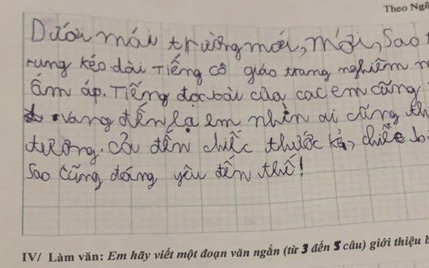 Theo Ngô
Dưới mái trường mới, mới, sao t
rung kéo dài Tiếng cô giáo trang nghiêm m
ấm áp. Tiếng đọc bài của các em cũng
vang đến lạ em nhìn ai cũng th
tương. Cả đến chiếc thước kẻ, chiếc b
Sao cũng đáng yêu đến thế!
IV/ Làm văn: Em hãy viết một đoạn văn ngắn (từ 3 đến 5 câu) giới thiệu b